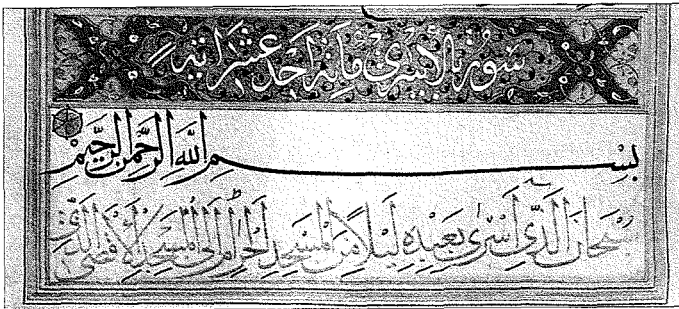 سورة الاسرى مائة احد عشر اية
بِسْمِ اللَّهِ الرَّحْمنِ الرَّحِيمِ
سُبْحَانَ الَّذِي أَسْرَى بِعَبْدِهِ لَيْلًا مِنَ الْمَسْجِدِ الْحَرَامِ إِلَى الْمَسْجِدِ الْأَقْصَى الَّذِي